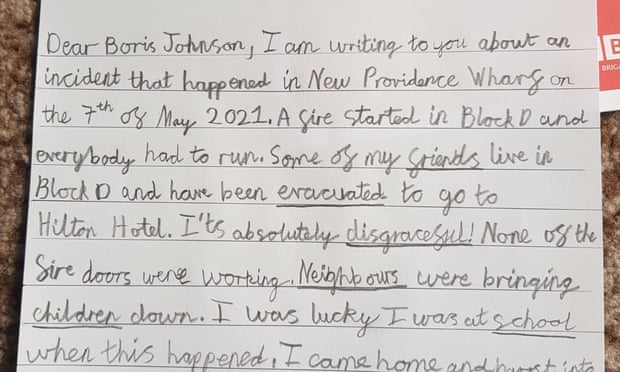 Dear Boris Johnson, I am writing to you about an
incident that happened in New Providence Wharf on
the 7th of May 2021. A fire started in Block D and
everybody had to run. Some of my friends live in
Block D and have been evacuated to go to
Hilton Hotel. I'ts absolutely disgraceful! None of the
fire doors were working. Neighbours were bringing
children down. I was lucky I was at school
when this happened. I came home and burst into
B
BRIGA